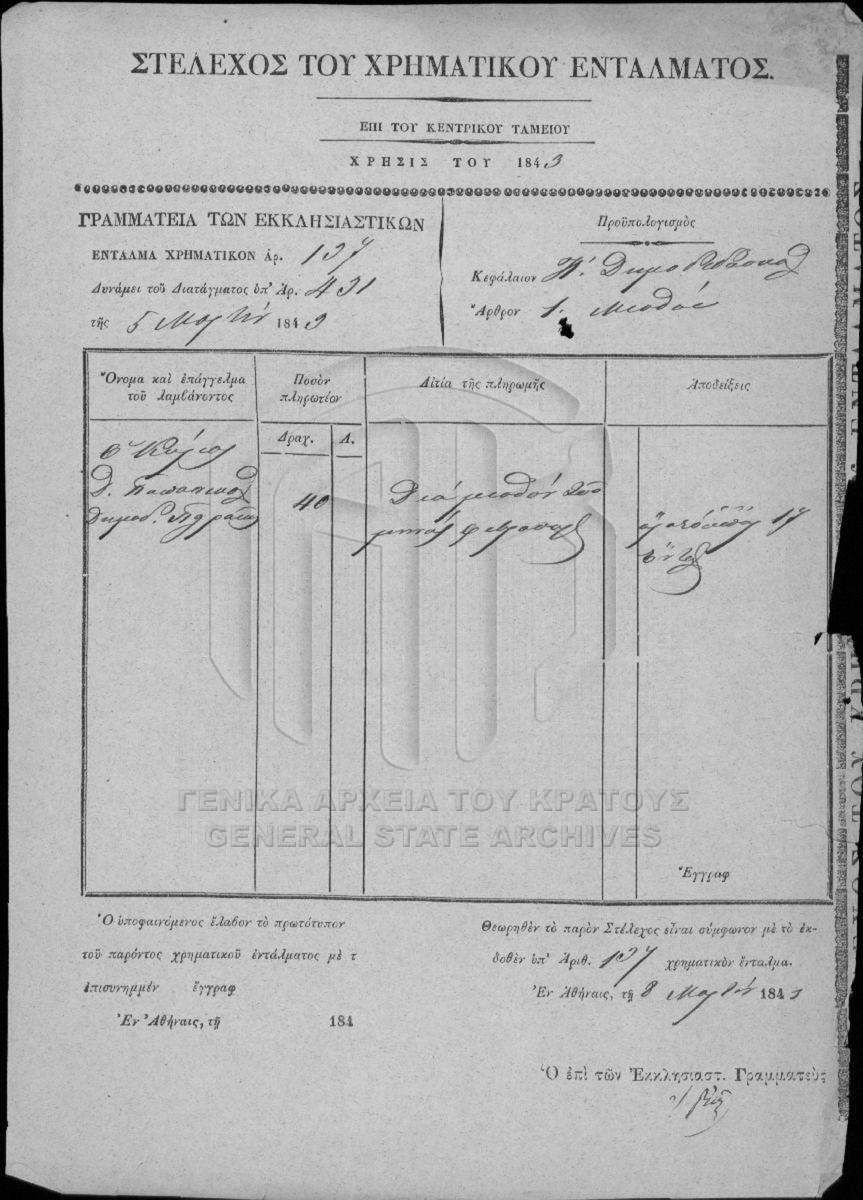 ΣΤΕΛΕΧΟΣ ΤΟΥ ΧΡΗΜΑΤΙΚΟΥ ΕΝΤΑΛΜΑΤΟΣ.
ΕΠΙ ΤΟΥ ΚΕΝΤΡΙΚΟΥ ΤΑΜΕΙΟΥ
ΧΡΗΣΙΣ ΤΟΥ 1843
ΓΡΑΜΜΑΤΕΙΑ ΤΩΝ ΕΚΚΛΗΣΙΑΣΤΙΚΩΝ
ΕΝΤΑΛΜΑ ΧΡΗΜΑΤΙΚΟΝ ἀρ. 137
Δυνάμει τοῦ Διατάγματος ὑπ' Ἀρ. 431
τῆς 5 Μαρτίου 1843
Προϋπολογισμὸς
Κεφάλαιον
Ἄρθρον 1. Μισθοὶ
Ὄνομα καὶ ἐπάγγελμα τοῦ λαμβάνοντος
Ποσὸν πληρωτέον
Αἰτία τῆς πληρωμῆς
Ἀποδείξεις
Δραχ. Λ.
ὁ Κύριος
Δ.
40
Διὰ μισθόν του
μηνὸς
17
ΓΕΝΙΚΑ ΑΡΧΕΙΑ ΤΟΥ ΚΡΑΤΟΥΣ
GENERAL STATE ARCHIVES
Ἔγγραφ
Ὁ ὑποφαινόμενος ἔλαβον τὸ πρωτότυπον
τοῦ παρόντος χρηματικοῦ ἐντάλματος μὲ τ
ἐπισυνημμέν ἔγγραφ
Ἐν Ἀθήναις, τῇ 184
Θεωρηθὲν τὸ παρὸν Στέλεχος εἶναι σύμφωνον μὲ τὸ ἐκ-
δοθὲν ὑπ' Ἀριθ. 137 χρηματικὸν ἔνταλμα.
Ἐν Ἀθήναις, τῇ 8 Μαρτίου 1843
Ὁ ἐπὶ τῶν Ἐκκλησιαστ. Γραμματεὺς